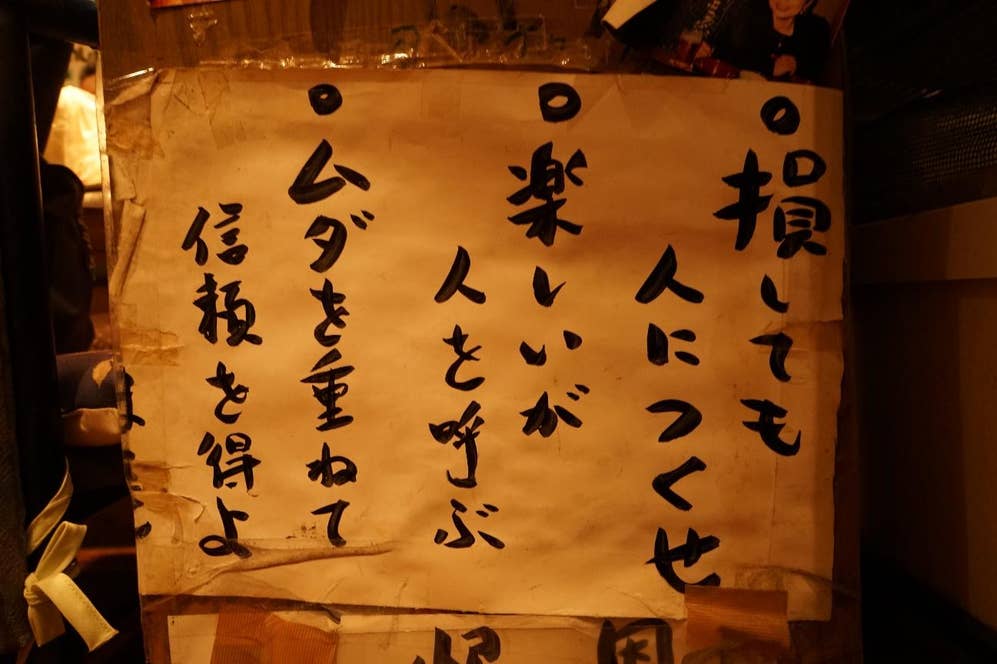 ○損しても
人につくせ
○楽しいが
人を呼ぶ
○ムダを重ねて
信頼を得よ